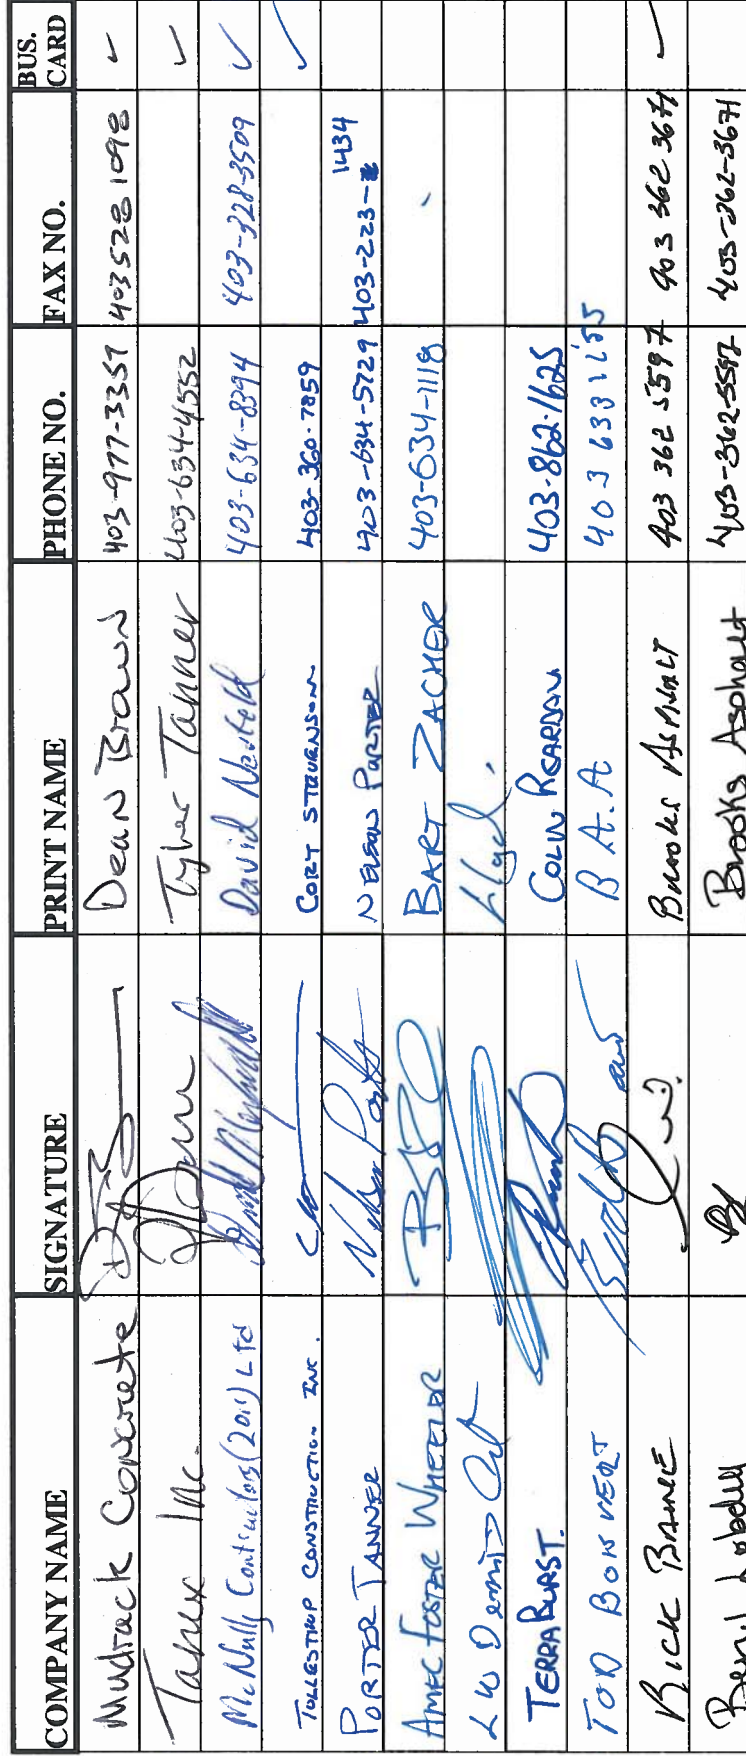 COMPANY NAME SIGNATURE PRINT NAME PHONE NO. FAX NO. BUS. CARD
Mudrack Concrete Dean Brown 403-977-3351 403 528 1098
Tanex Inc. Tyler Tanner 403-634-4552
McNally Contractors (2011) Ltd David 403-634-8394 403-328-3509
TOLLESTRUP CONSTRUCTION INC. CORT STEVENSON 403-360-7859
PORTER TANNER Nelson Porter NELSON PORTER 403-634-5729 403-223-1434
AMEC FOSTER WHEELER BART ZACHER 403-634-1118
LW Dennis Lloyd.
TERRABURST. COLIN REARDON 403-862-1625
TOD BOISVERT B A.A 403 633 1155
RICK BRUCE BROOKS ASPHALT 403 362 5597 403 362 3671
Brooks Asphalt 403-362-5597 403-362-3671